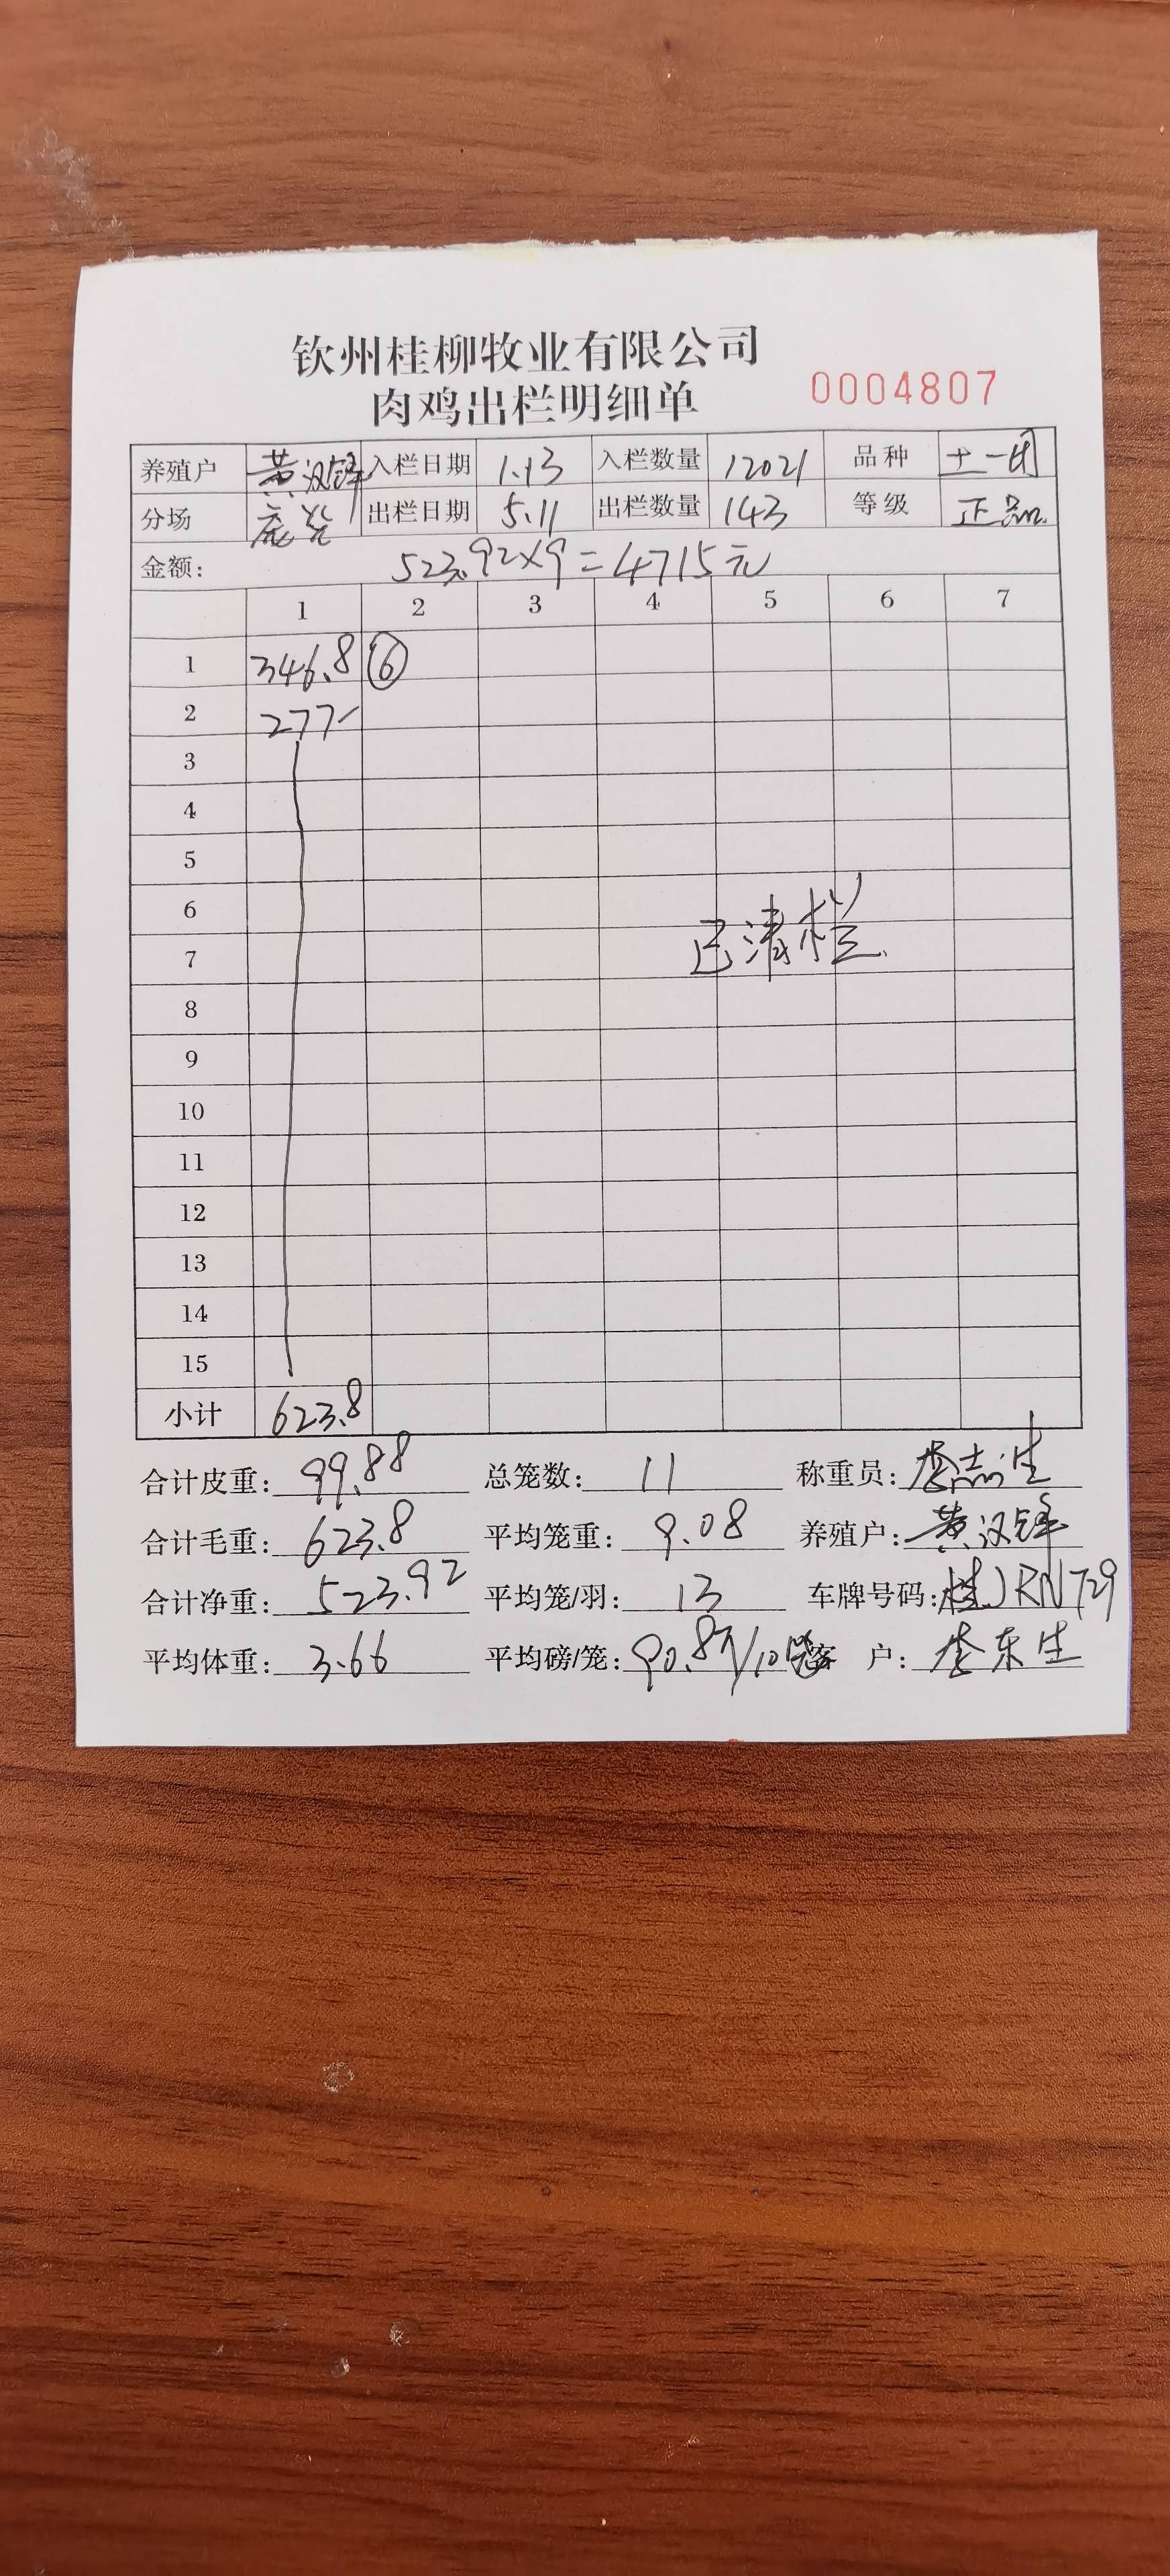 钦州桂柳牧业有限公司
肉鸡出栏明细单 0004807
养殖户 黄汉锋 入栏日期 1.13 入栏数量 12021 品种 土一
分场 出栏日期 5.11 出栏数量 143 等级 正品
金额: 523.92×9=4715元
1 2 3 4 5 6 7
1 346.8 ⑥
2 277
3
4
5
6
已清栏
7
8
9
10
11
12
13
14
15
小计 623.8
合计皮重: 99.88 总笼数: 11 称重员: 李志生
合计毛重: 623.8 平均笼重: 9.08 养殖户: 黄汉锋
合计净重: 523.92 平均笼/羽: 13 车牌号码: 桂JRN729
平均体重: 3.66 平均磅/笼: 90.8 /10 客 户: 李东生